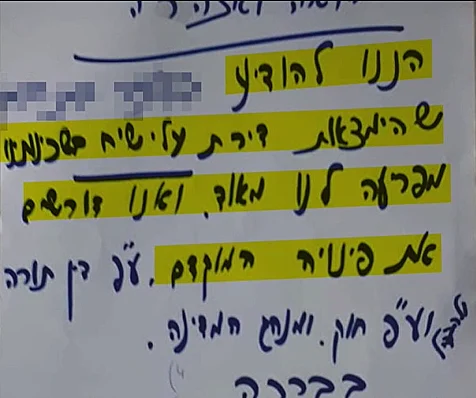 הננו להודיע
שהימצאות דירת עלי שיח בשכונתנו
מפריעה לנו מאוד. ואנו דורשים
את פינויה המוקדם. ע"פ דין תורה
וע"פ חוק. ומנהג המדינה.
בברכה